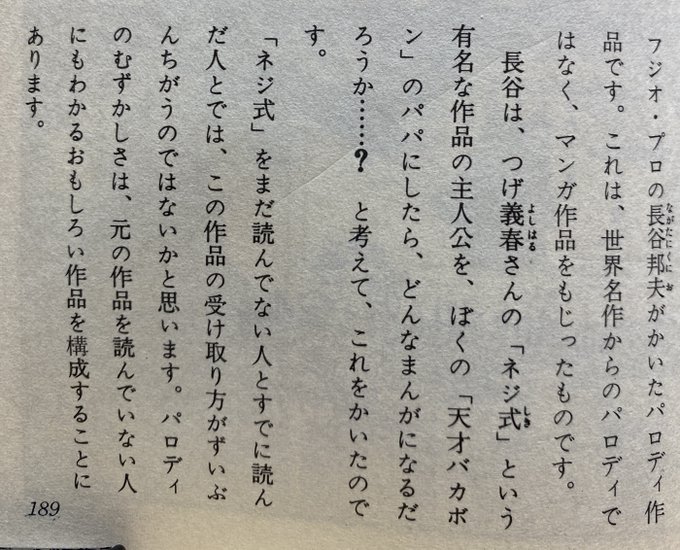 フジオ・プロの長谷邦夫がかいたパロディ作
品です。これは、世界名作からのパロディで
はなく、マンガ作品をもじったものです。
長谷は、つげ義春さんの「ネジ式」という
有名な作品の主人公を、ぼくの「天才バカボ
ン」のパパにしたら、どんなまんがになるだ
ろうか……? と考えて、これをかいたので
す。
「ネジ式」をまだ読んでない人とすでに読ん
だ人とでは、この作品の受け取り方がずいぶ
んちがうのではないかと思います。パロディ
のむずかしさは、元の作品を読んでいない人
にもわかるおもしろい作品を構成することに
あります。
189